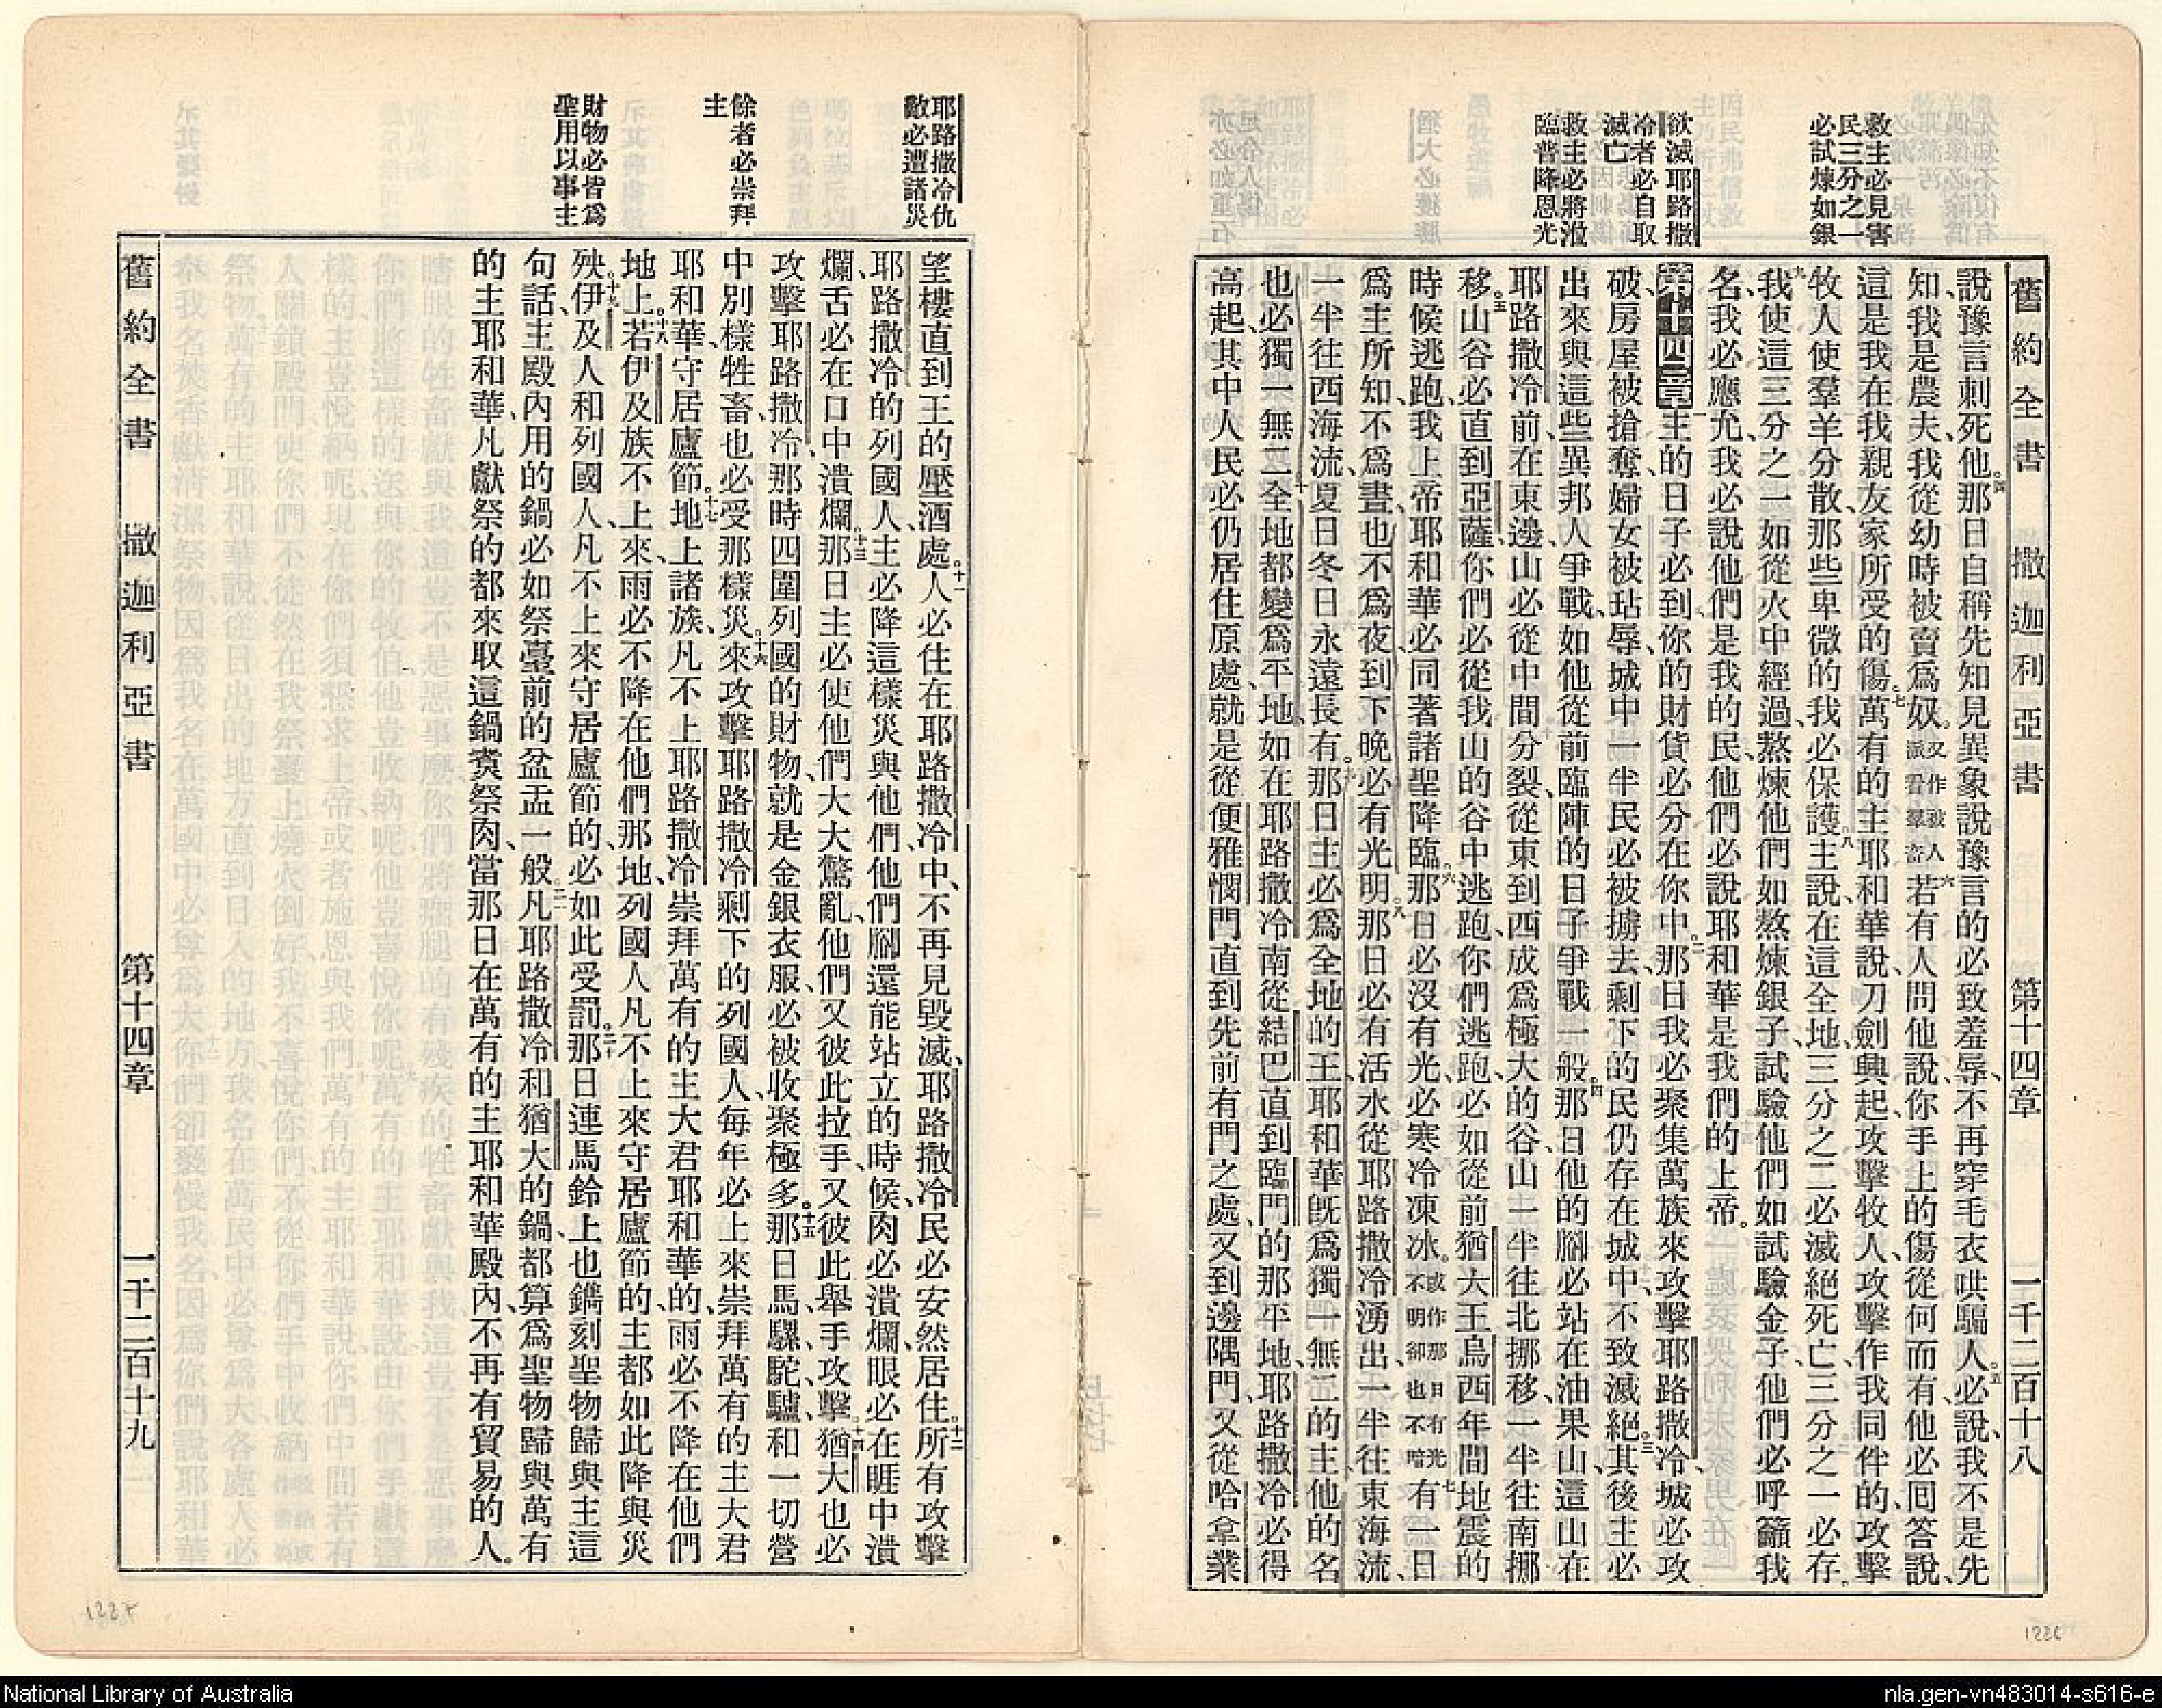 舊約全書　撒迦利亞書　第十四章　一千二百十八
救主必見害
民三分之一
必試煉如銀
欲滅耶路撒
冷者必自取
滅亡
救主必將涖
臨普降恩光
說豫言刺死他。四那日自稱先知見異象說豫言的必致羞辱、不再穿毛衣哄騙人。五必說、我不是先
知、我是農夫、我從幼時被賣爲奴。又作被人派看羣畜六若有人問他說、你手上的傷從何而有、他必回答說、
這是我在我親友家所受的傷。七萬有的主耶和華說、刀劍興起、攻擊牧人、攻擊作我同伴的、攻擊
牧人使羣羊分散、那些卑微的我必保護。八主說、在這全地、三分之二必滅絕死亡、三分之一必存。
九我使這三分之一如從火中經過、熬煉他們如熬煉銀子、試驗他們如試驗金子、他們必呼籲我
名、我必應允、我必說他們是我的民、他們必說耶和華是我們的上帝。
第十四章一主的日子必到、你的財貨必分在你中。二那日我必聚集萬族來攻擊耶路撒冷、城必攻
破、房屋被搶奪、婦女被玷辱、城中一半民必被擄去、剩下的民仍存在城中、不致滅絕。三其後主必
出來與這些異邦人爭戰、如他從前臨陣的日子爭戰一般。四那日他的腳必站在油果山、這山在
耶路撒冷前、在東邊、山必從中間分裂、從東到西成爲極大的谷、山一半往北挪移、一半往南挪
移。五山谷必直到亞薩、你們必從我山的谷中逃跑、你們逃跑、必如從前猶大王烏西年間地震的
時候逃跑、我上帝耶和華必同著諸聖降臨。六那日必沒有光、必寒冷凍冰。或作那日有光不明卻也不暗七有一日
爲主所知、不爲晝、也不爲夜、到下晚必有光明。八那日必有活水從耶路撒冷湧出、一半往東海流、
一半往西海流、夏日冬日永遠長有。九那日主必爲全地的王、耶和華旣爲獨一無二的主、他的名
也必獨一無二。十全地都變爲平地、如在耶路撒冷南從結巴直到臨門的那平地、耶路撒冷必得
高起、其中人民必仍居住原處、就是從便雅憫門直到先前有門之處、又到邊隅門、又從哈拿業
耶路撒冷仇
敵必遭諸災
餘者必崇拜
主
財物必皆爲
聖用以事主
望樓直到王的壓酒處。十一人必住在耶路撒冷中、不再見毀滅、耶路撒冷民必安然居住。十二所有攻擊
耶路撒冷的列國人、主必降這樣災與他們、他們腳還能站立的時候、肉必潰爛、眼必在眶中潰
爛、舌必在口中潰爛。十三那日主必使他們大大驚亂、他們又彼此拉手、又彼此舉手攻擊。十四猶大也必
攻擊耶路撒冷、那時四圍列國的財物、就是金銀衣服、必被收聚極多。十五那日馬、騾、駝、驢、和一切營
中別樣牲畜、也必受那樣災。十六來攻擊耶路撒冷剩下的列國人、每年必上來崇拜萬有的主大君
耶和華、守居廬節。十七地上諸族、凡不上耶路撒冷崇拜萬有的主大君耶和華的、雨必不降在他們
地上。十八若伊及族不上來、雨必不降在他們那地、列國人凡不上來守居廬節的、主都如此降與災
殃。十九伊及人和列國人、凡不上來守居廬節的、必如此受罰。二十那日連馬鈴上也鐫刻聖物歸與主這
句話、主殿內用的鍋必如祭臺前的盆盂一般。二一凡耶路撒冷和猶大的鍋、都算爲聖物歸與萬有
的主耶和華、凡獻祭的都來取這鍋煑祭肉、當那日在萬有的主耶和華殿內、不再有貿易的人。
舊約全書　撒迦利亞書　第十四章　一千二百十九
1226
National Library of Australia
nla.gen-vn483014-s616-e